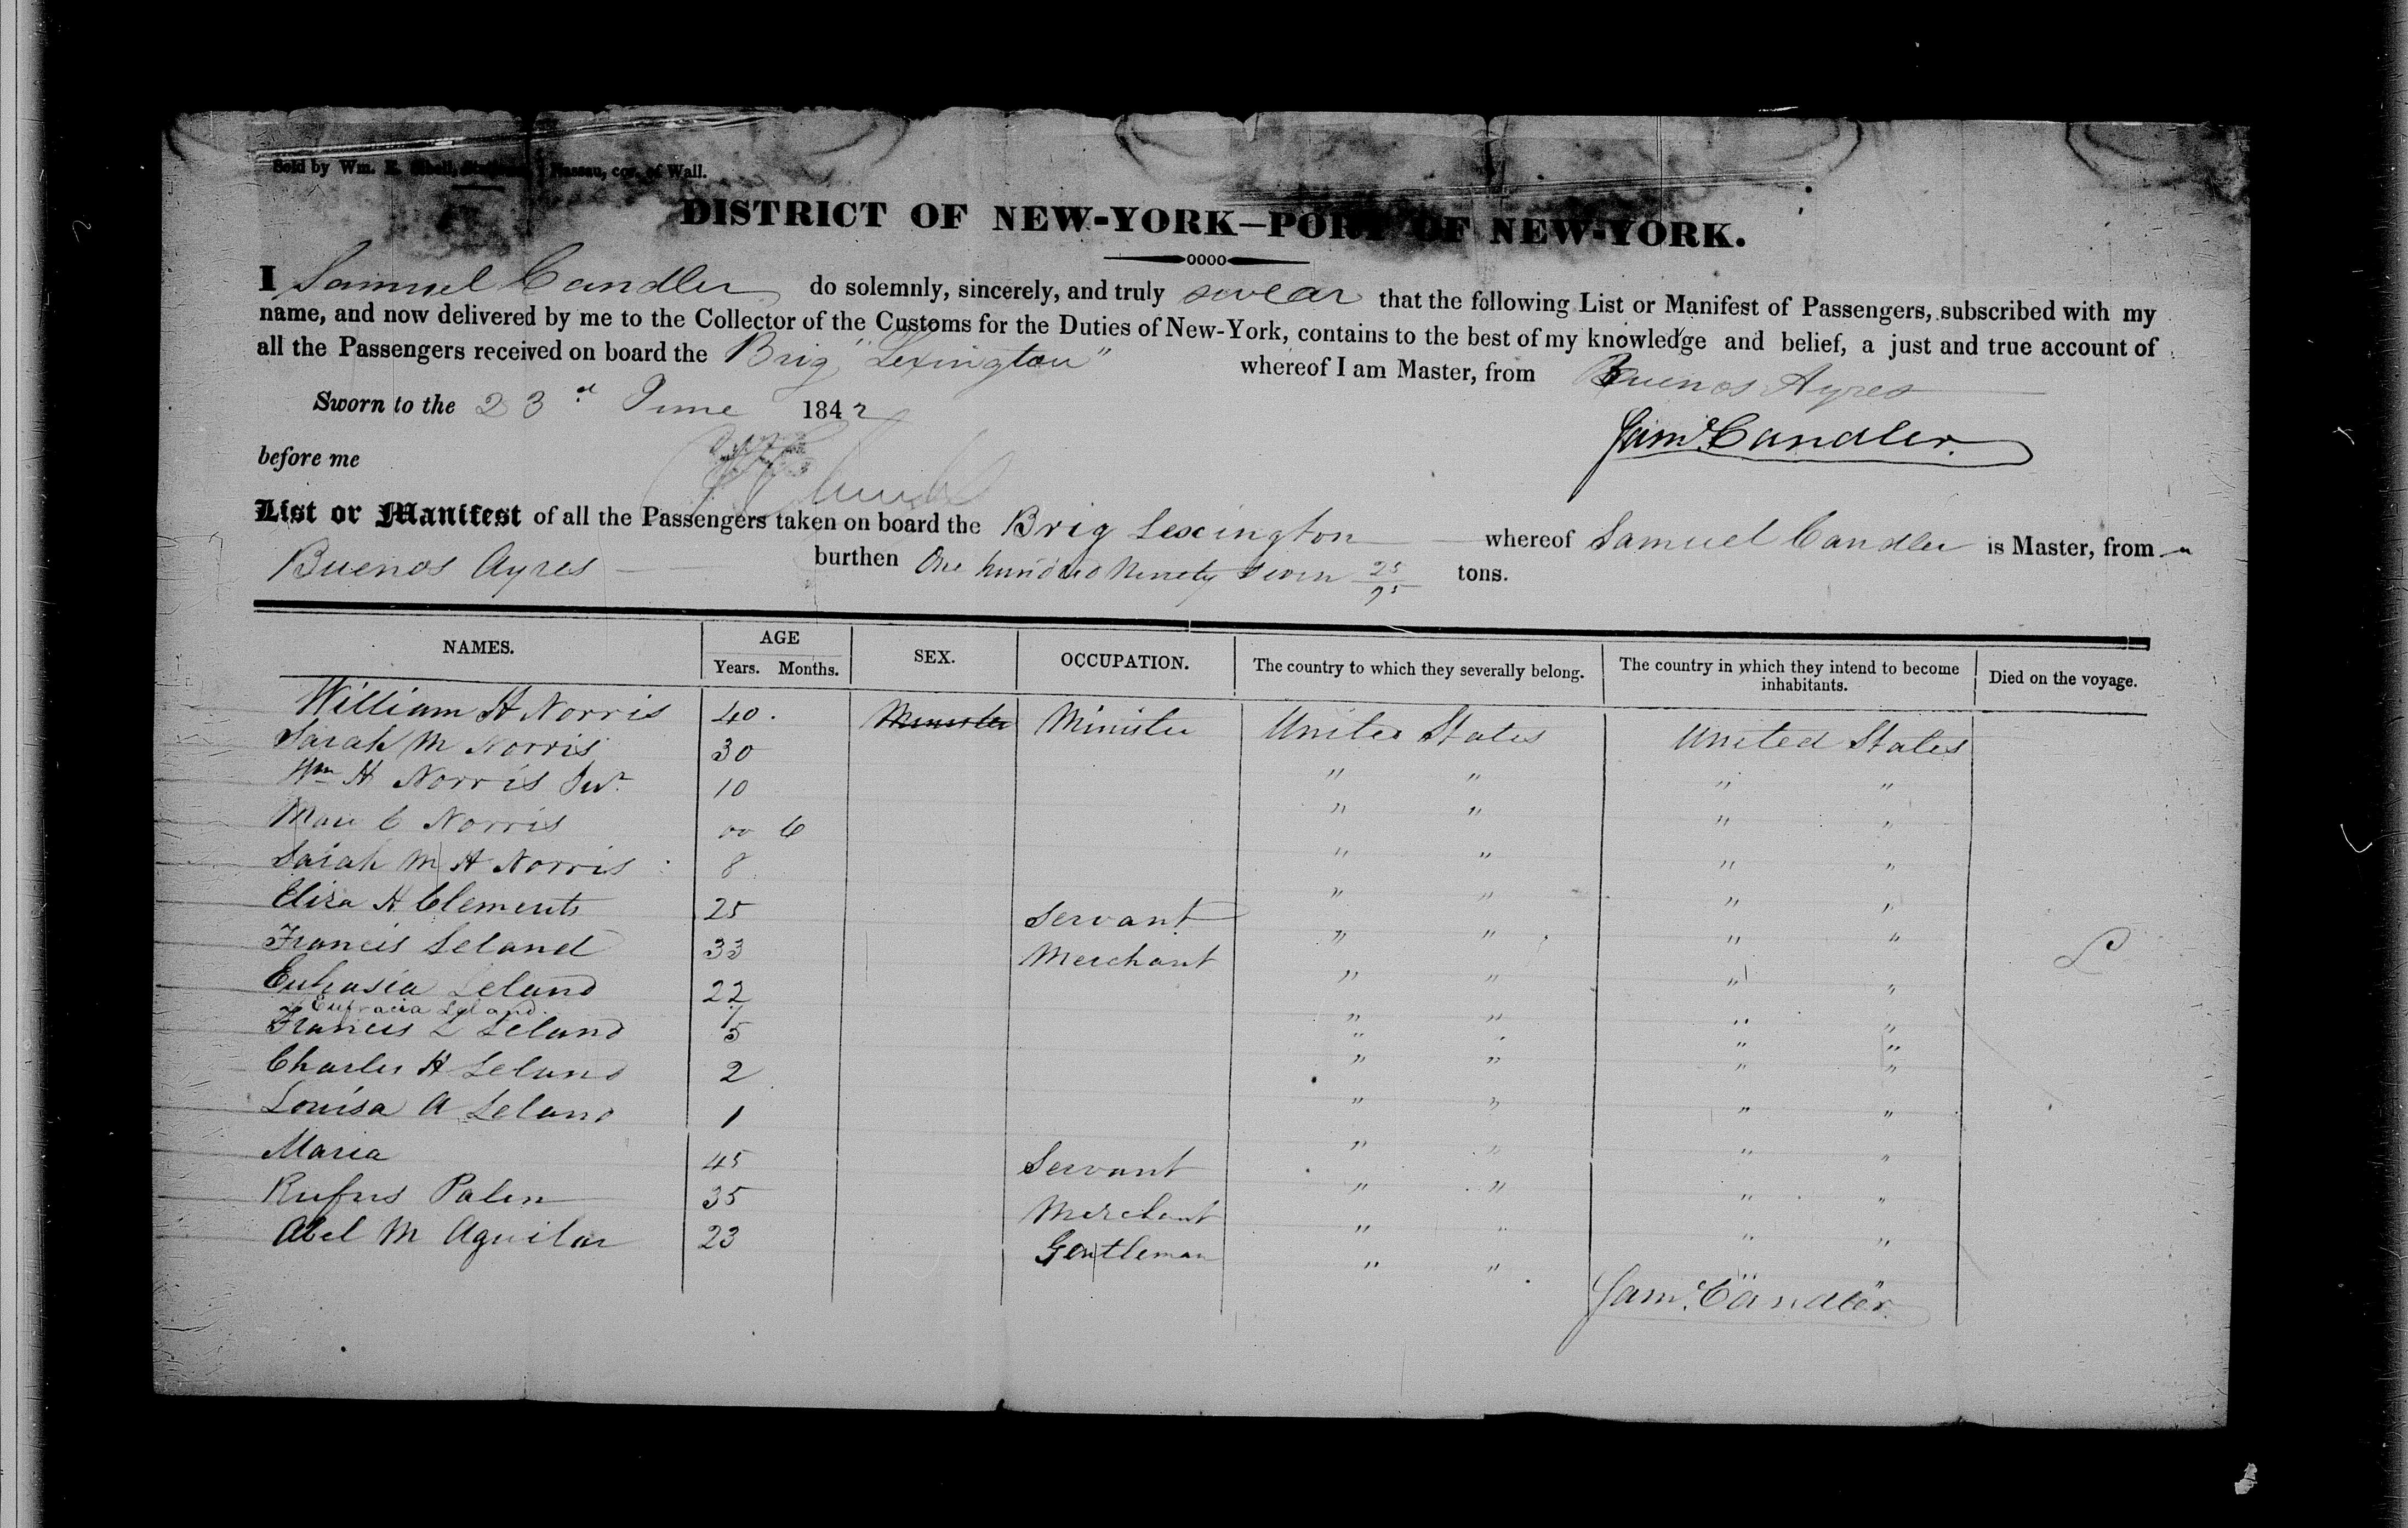 Sold by Wm. Nassau, cor. of Wall.
DISTRICT OF NEW-YORK—PORT OF NEW-YORK.
I Samuel Candler do solemnly, sincerely, and truly swear that the following List or Manifest of Passengers, subscribed with my
name, and now delivered by me to the Collector of the Customs for the Duties of New-York, contains to the best of my knowledge and belief, a just and true account of
all the Passengers received on board the Brig "Lexington" whereof I am Master, from Buenos Ayres
Sworn to the 23d June 1842
Saml Candler.
before me
List or Manifest of all the Passengers taken on board the Brig Lexington whereof Samuel Candler is Master, from
Buenos Ayres burthen One hundred Ninety Seven 25/95 tons.
NAMES. AGE Years. Months. SEX. OCCUPATION. The country to which they severally belong. The country in which they intend to become inhabitants. Died on the voyage.
William H Norris 40. Minister Minister United States United States
Sarah M Norris 30 " " " "
Wm H Norris Junr 10 " " " "
C Norris 00 6 " " " "
Sarah M H Norris 8 " " " "
Eliza H Clements 25 Servant " " " "
Francis Leland 33 Merchant " " " "
Eufrasia Leland 22 " " " "
" Eufracia Leland. 7 " " " "
Francis L Leland 5 " " " "
Charles H Leland 2 " " " "
Louisa A Leland 1 " " " "
Maria 45 Servant " " " "
Rufus Palen 35 Merchant " " " "
Abel M Aguilar 23 Gentleman " " " "
Saml Candler